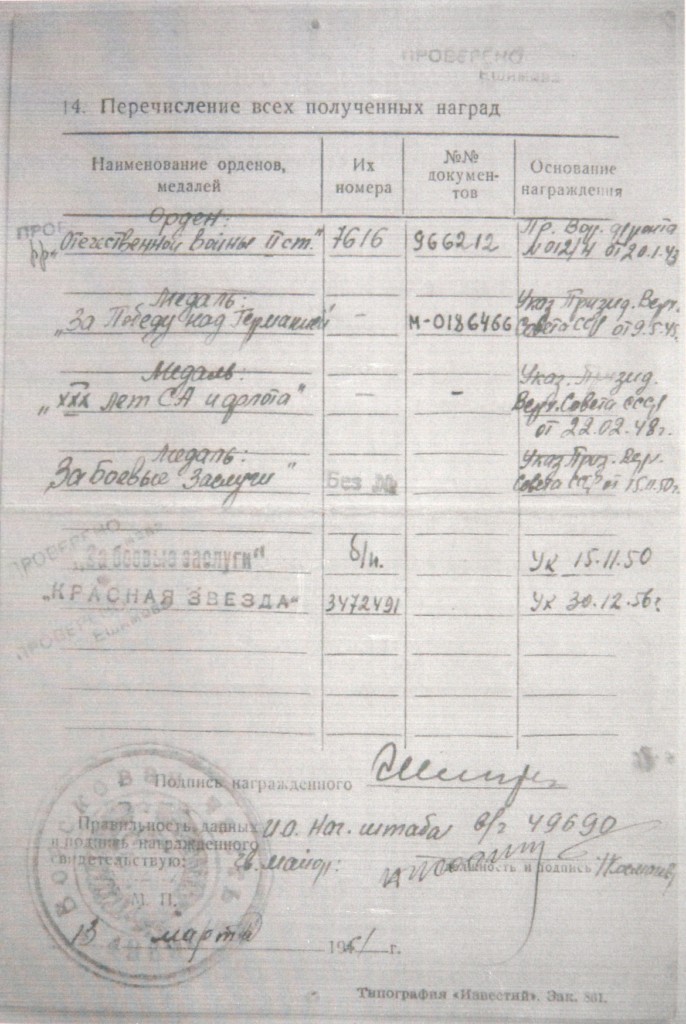 ПРОВЕРЕНО
14. Перечисление всех полученных наград
Наименование орденов, медалей
Их номера
№№ документов
Основание награждения
Орден:
„Отечественной войны II ст."
7616
966212
Пр. Вой. фронта
№ 012/Н от 20.1.43
Медаль:
„За Победу над Германией"
–
М-0186466
Указ Призид. Верх.
Совета ССР от 9.5.45.
Медаль:
„XXX лет СА и флота"
–
–
Указ. Призид.
Верх. Совета СССР
от 22.02.48г.
Медаль:
„За Боевые Заслуги"
Без №
Указ През. Верх.
Совета ССР от 15.11.50г.
ПРОВЕРЕНО
„За боевые заслуги"
б/н.
Ук 15.11.50
„КРАСНАЯ ЗВЕЗДА"
3472491
Ук 30.12.56г.
ПРОВЕРЕНО
Подпись награжденного
Правильность данных и подпись награжденного свидетельствую:
И.О. Нач. штаба в/ч 49690
гв. майор:
должность и подпись
ВОЙСКОВАЯ ЧАСТЬ
М. П.
13 марта 1961 г.
Типография «Известий». Зак. 861.